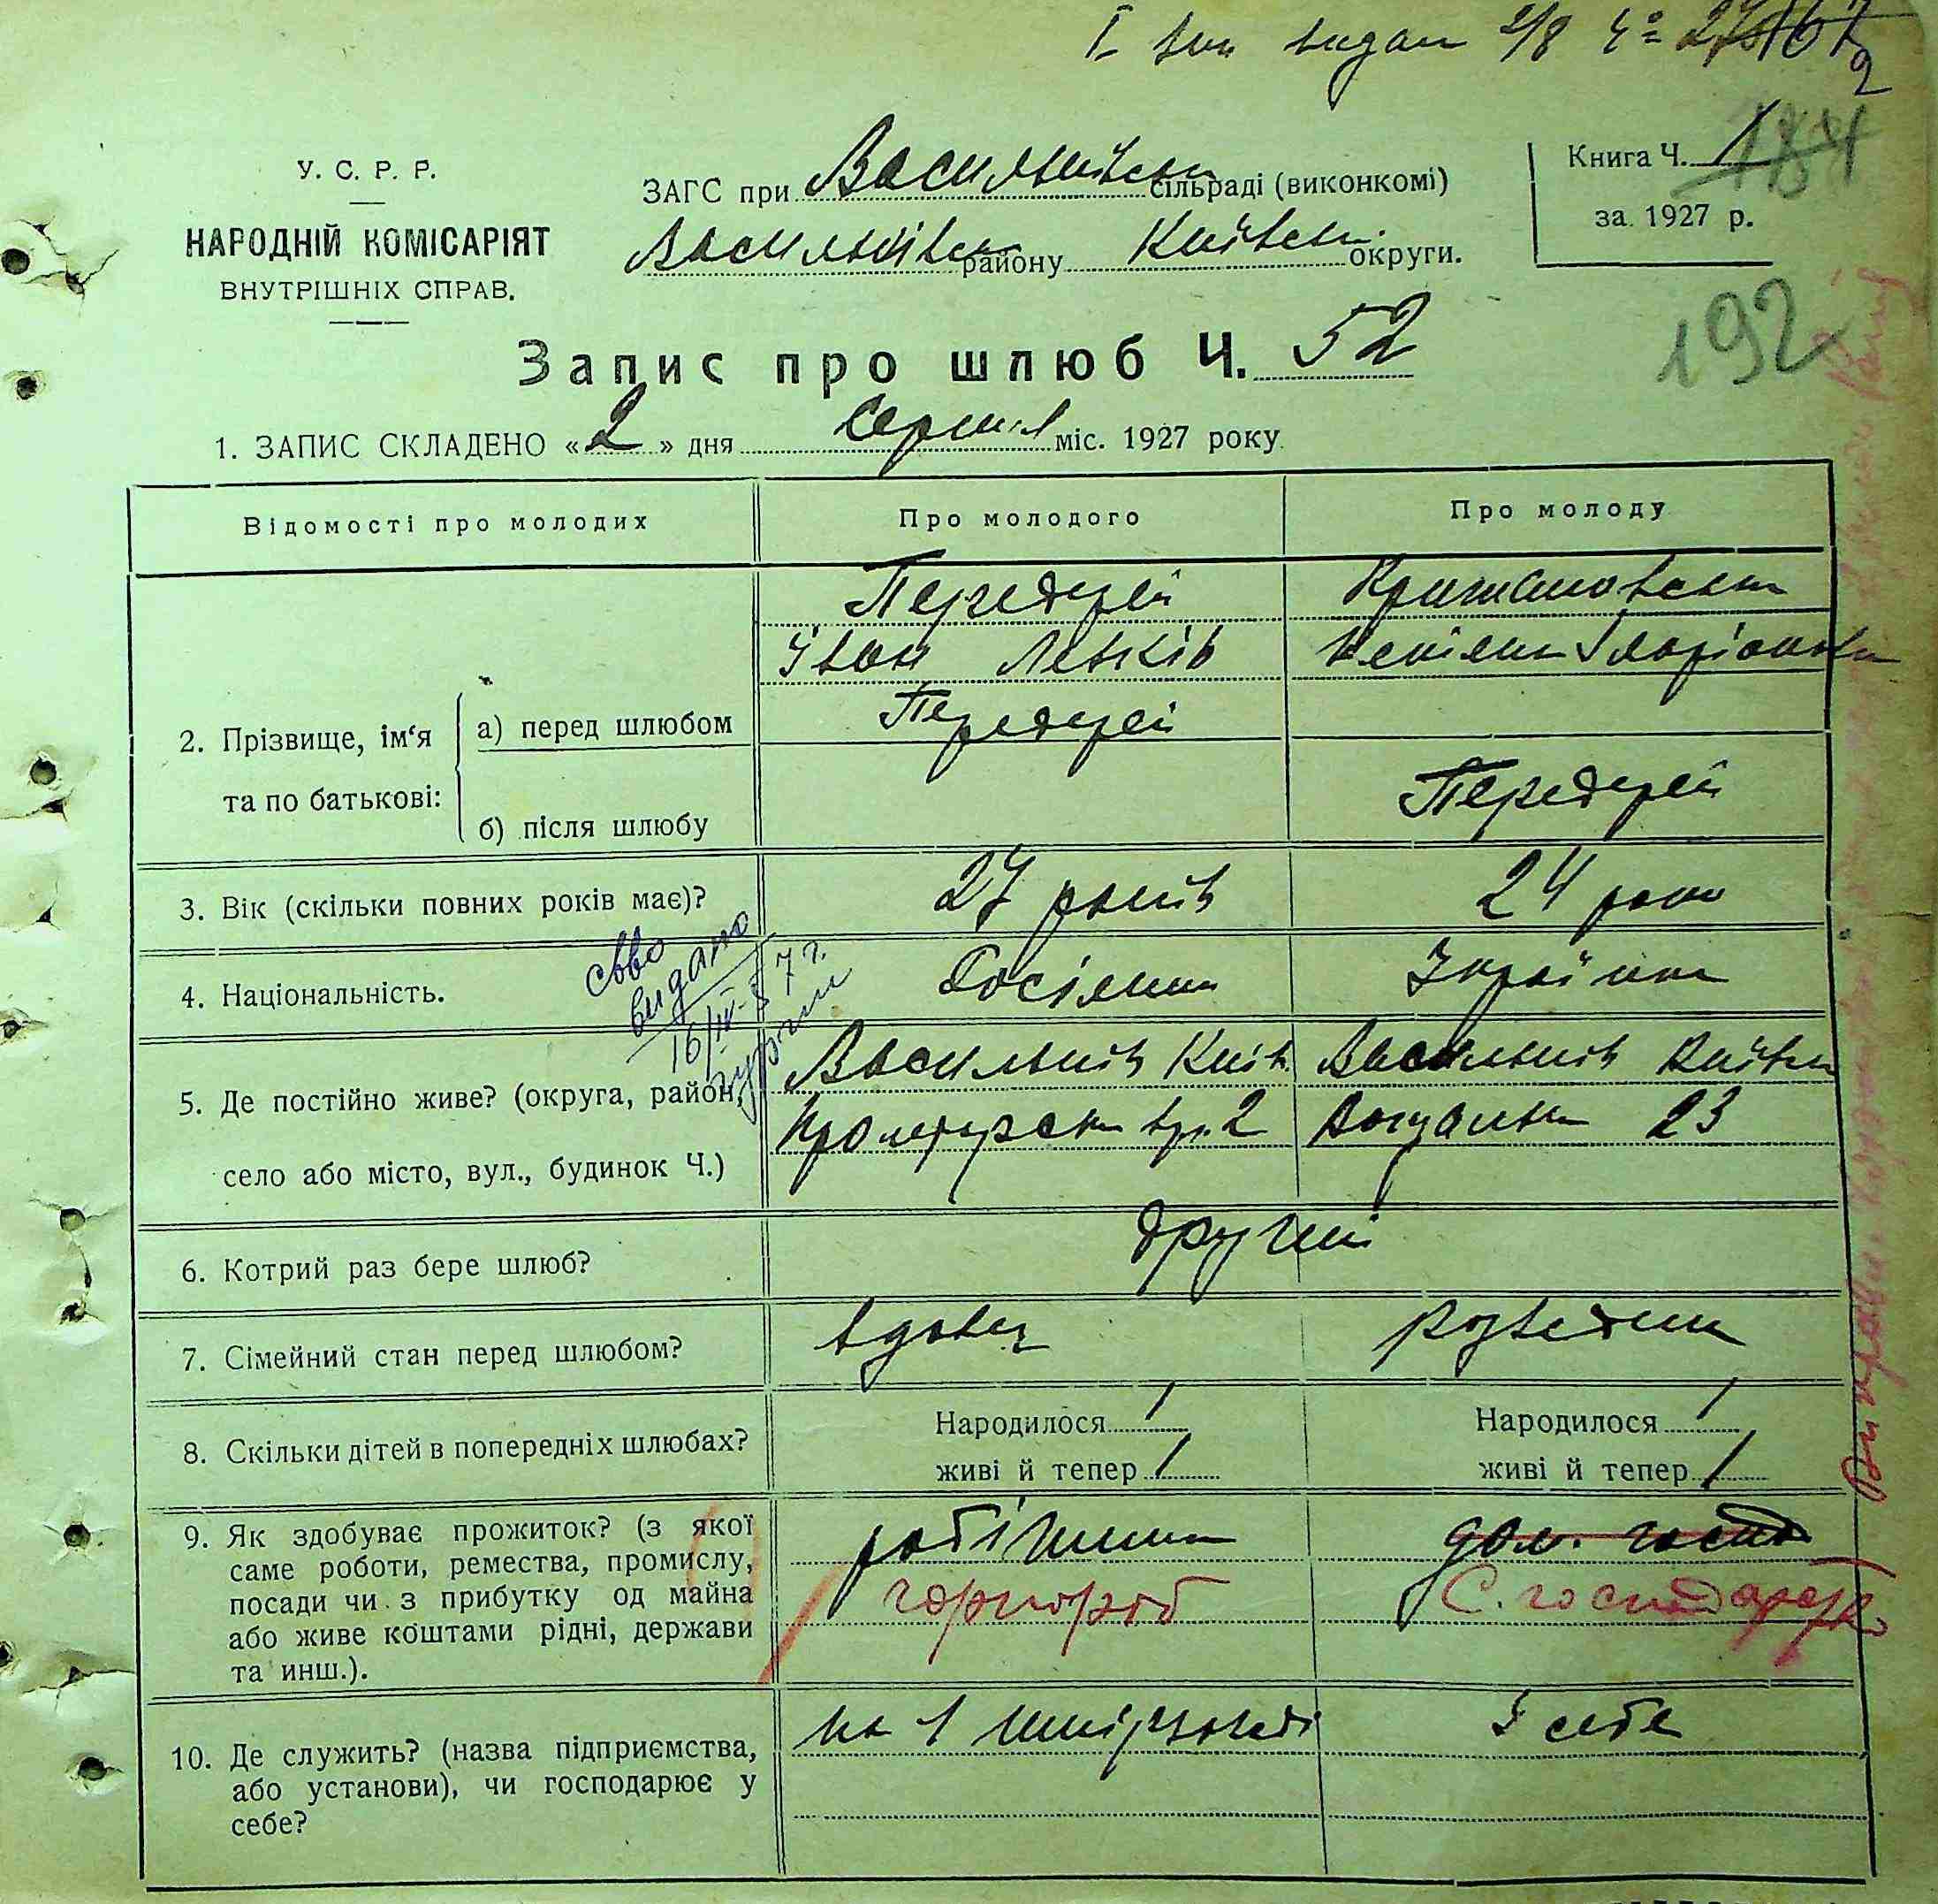 У. С. Р. Р.
НАРОДНІЙ КОМІСАРІЯТ
ВНУТРІШНІХ СПРАВ.
ЗАГС при Васильківськ сільраді (виконкомі)
Васильківськ району Київськ. округи.
Книга Ч. 1
184
за 1927 р.
192
Запис про шлюб Ч. 52
1. ЗАПИС СКЛАДЕНО « 2 » дня Серпня міс. 1927 року
Відомості про молодих
Про молодого
Про молоду
2. Прізвище, ім‘я та по батькові:
а) перед шлюбом
б) після шлюбу
Передерей
Іван Левків
Передерей
Крижановськ
Іларіоновн
Передерей
3. Вік (скільки повних років має)?
27 років
24 роки
4. Національність.
Росіянин
Українк
свво
видано
16/IV-37 г.
5. Де постійно живе? (округа, район,
село або місто, вул., будинок Ч.)
Васильків Київ.
Пролетарськ вул. 2
Васильків Київськ
Вокзальн 23
6. Котрий раз бере шлюб?
другий
7. Сімейний стан перед шлюбом?
вдовец
розведен
8. Скільки дітей в попередніх шлюбах?
Народилося 1
живі й тепер 1
Народилося 1
живі й тепер 1
9. Як здобуває прожиток? (з якої
саме роботи, ремества, промислу,
посади чи з прибутку од майна
або живе коштами рідні, держави
та инш.).
робітник
чорнороб
дом. госпо
С. господарств
10. Де служить? (назва підприємства,
або установи), чи господарює у
себе?
на 1 шкірзаводі
у себе